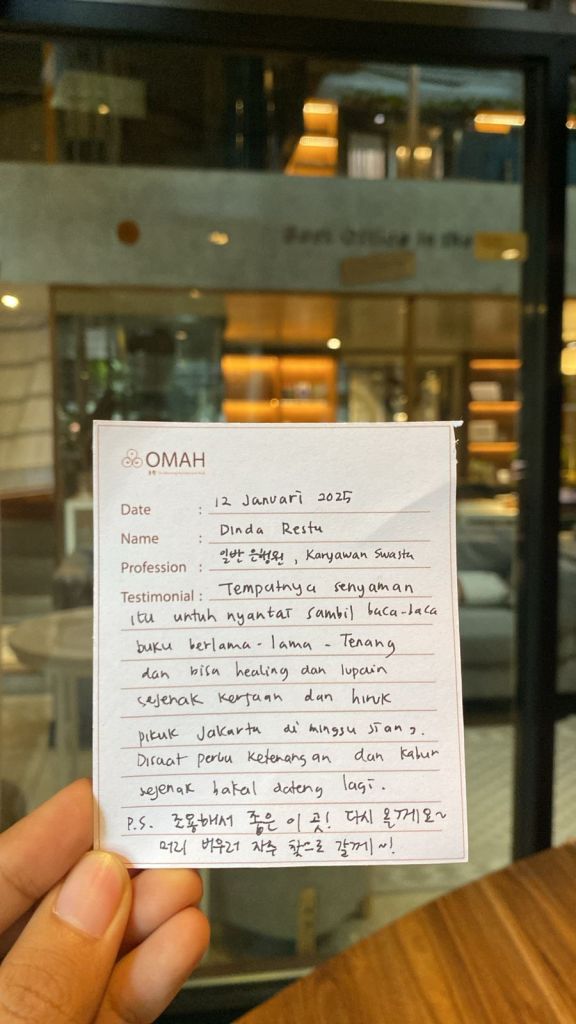 Best Office in the
OMAH
Date : 12 Januari 2025
Name : Dinda Restu
Profession : 일반 은행원, Karyawan Swasta
Testimonial : Tempatnya senyaman
itu untuk nyantai sambil baca-baca
buku berlama-lama - Tenang
dan bisa healing dan lupain
sejenak kerjaan dan hiruk
pikuk Jakarta di minggu siang.
Disaat perlu ketenangan dan kabur
sejenak bakal dateng lagi.
P.S. 조용해서 좋은 이 곳! 다시 올께요~
머리 비우러 자주 찾으로 갈께~!